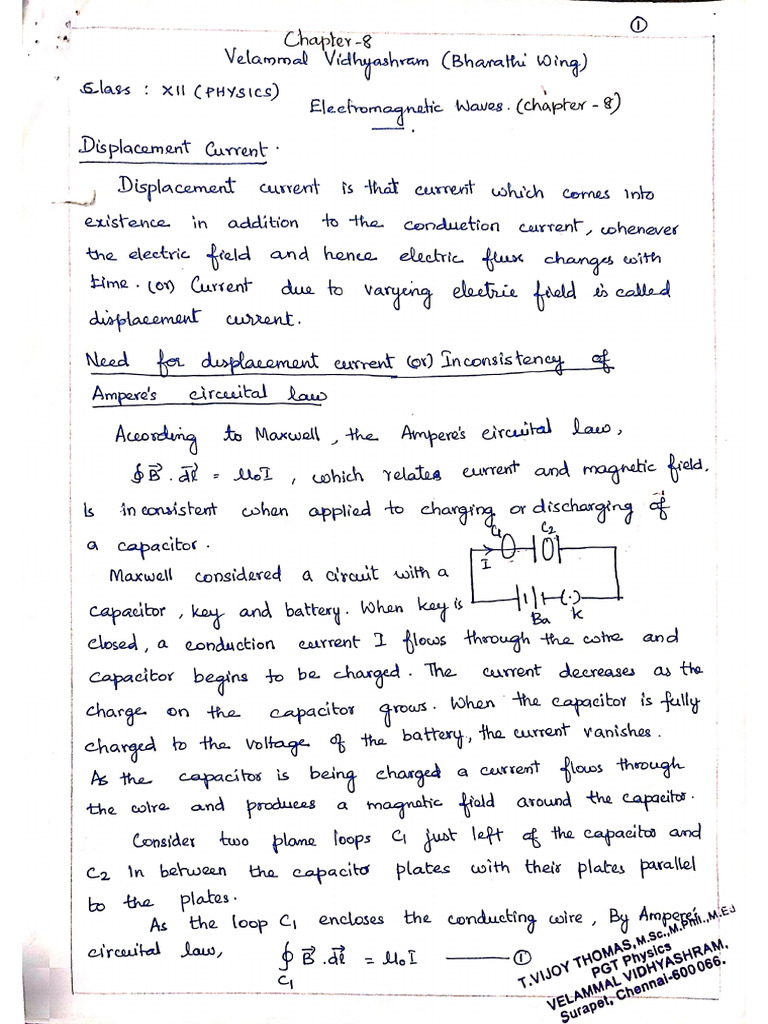 ①
Chapter-8
Velammal Vidhyashram (Bharathi Wing)
Class : XII (PHYSICS)
Electromagnetic Waves. (chapter - 8)
Displacement Current.
Displacement current is that current which comes into
existence in addition to the conduction current, whenever
the electric field and hence electric flux changes with
time. (or) Current due to varying electric field is called
displacement current.
Need for displacement current (or) Inconsistency of
Ampere's circuital law
According to Maxwell, the Ampere's circuital law,
∮B⃗.dl⃗ = μ₀I, which relates current and magnetic field.
Is inconsistent when applied to charging or discharging of
a capacitor.
C₁ C₂
I
Ba K
Maxwell considered a circuit with a
capacitor, key and battery. When key is
closed, a conduction current I flows through the wire and
capacitor begins to be charged. The current decreases as the
charge on the capacitor grows. When the capacitor is fully
charged to the voltage of the battery, the current vanishes.
As the capacitor is being charged a current flows through
the wire and produces a magnetic field around the capacitor.
Consider two plane loops C₁ just left of the capacitor and
C₂ in between the capacitor plates with their plates parallel
to the plates.
As the loop C₁ encloses the conducting wire, By Ampere's
circuital law, ∮B⃗.dl⃗ = μ₀I —— ①
C₁
T.VIJOY THOMAS, M.Sc.,M.Phil.,M.Ed
PGT Physics
VELAMMAL VIDHYASHRAM,
Surapet, Chennai-600066.